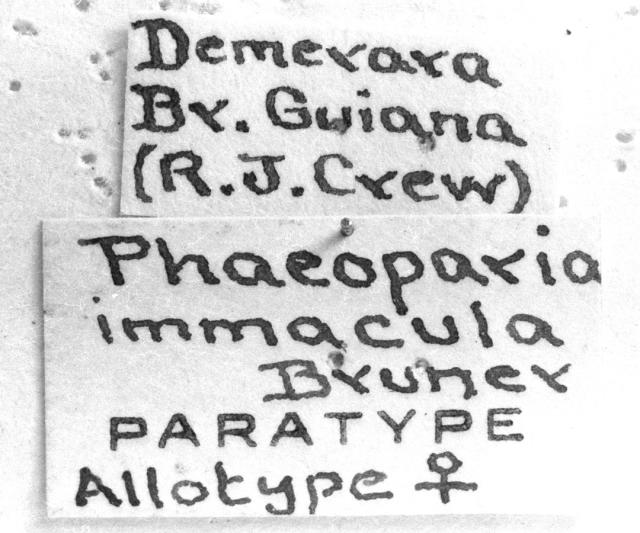 Demerara
Br. Guiana
(R.J. Crew)
Phaeoparia
immacula
Bruner
PARATYPE
Allotype ♀